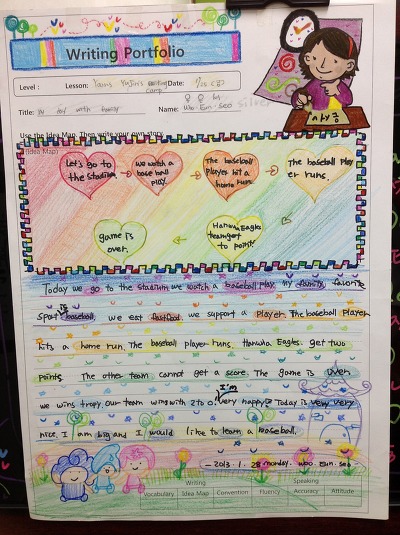 Writing Portfolio
Level : Lesson: Yoons YuSin's writing camp Date:
Title: my day with family Name: Woo. Eun. Seo silver
Use the Idea Map. Then write your own story.
(Idea Map)
Let's go to the stadium.
We watch a base ball play.
The baseball player hit a home run.
The baseball player runs.
Hanwha Eagles team get to point!
game is over.
Today we go to the stadium we watch a baseball play. my family favorite
sport is baseball. we eat fastfood. we support a player. The baseball player
hits a home run. The baseball player runs. Hanwha Eagles. get two
points. The other team cannot get a score. The game is over
we wins tropy. our team wins with 2 to 0. I'm very happy! Today is very very
nice. I am big and I would like to learn a baseball.
- 2013. 1. 28 monday. woo. Eun. seo
Writing Speaking
Vocabulary Idea Map Convention Fluency Accuracy Attitude